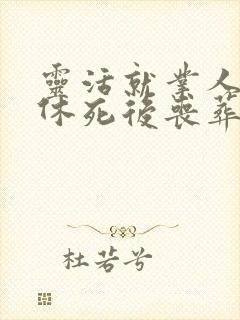 靈活就業人
休死後喪葬
杜若兮